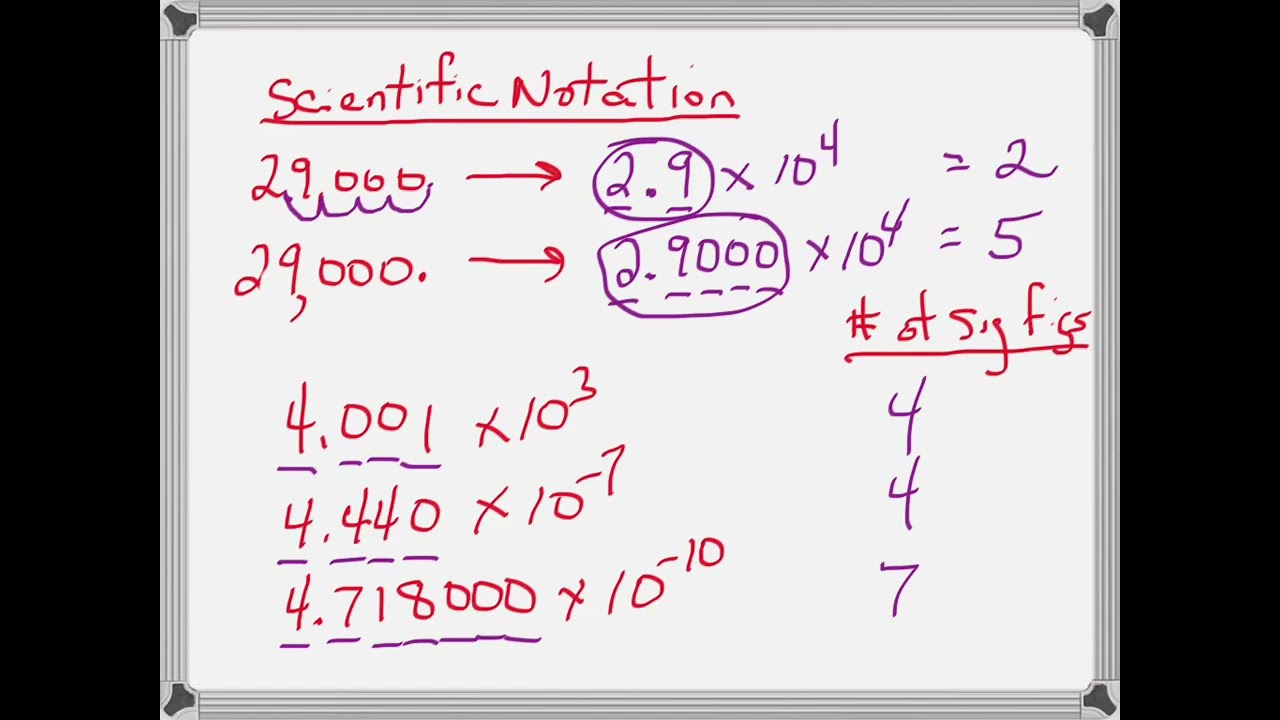 Scientific Notation
29,000 → 2.9 × 10⁴ = 2
29,000. → 2.9000 × 10⁴ = 5
# of Sig Figs
4.001 × 10³ 4
4.440 × 10⁻⁷ 4
4.718000 × 10⁻¹⁰ 7